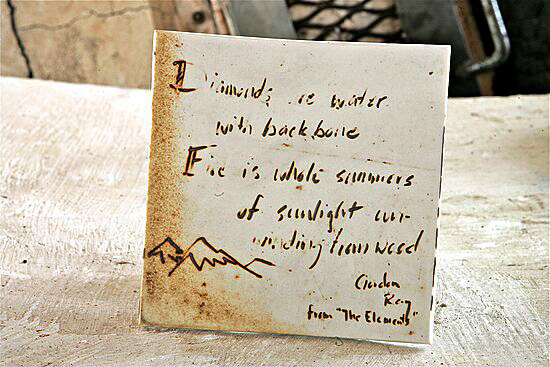 Diamonds are water
with backbone
Fire is whole summers
of sunlight un-
winding from wood
Gordon
Ray
from "The Elements"